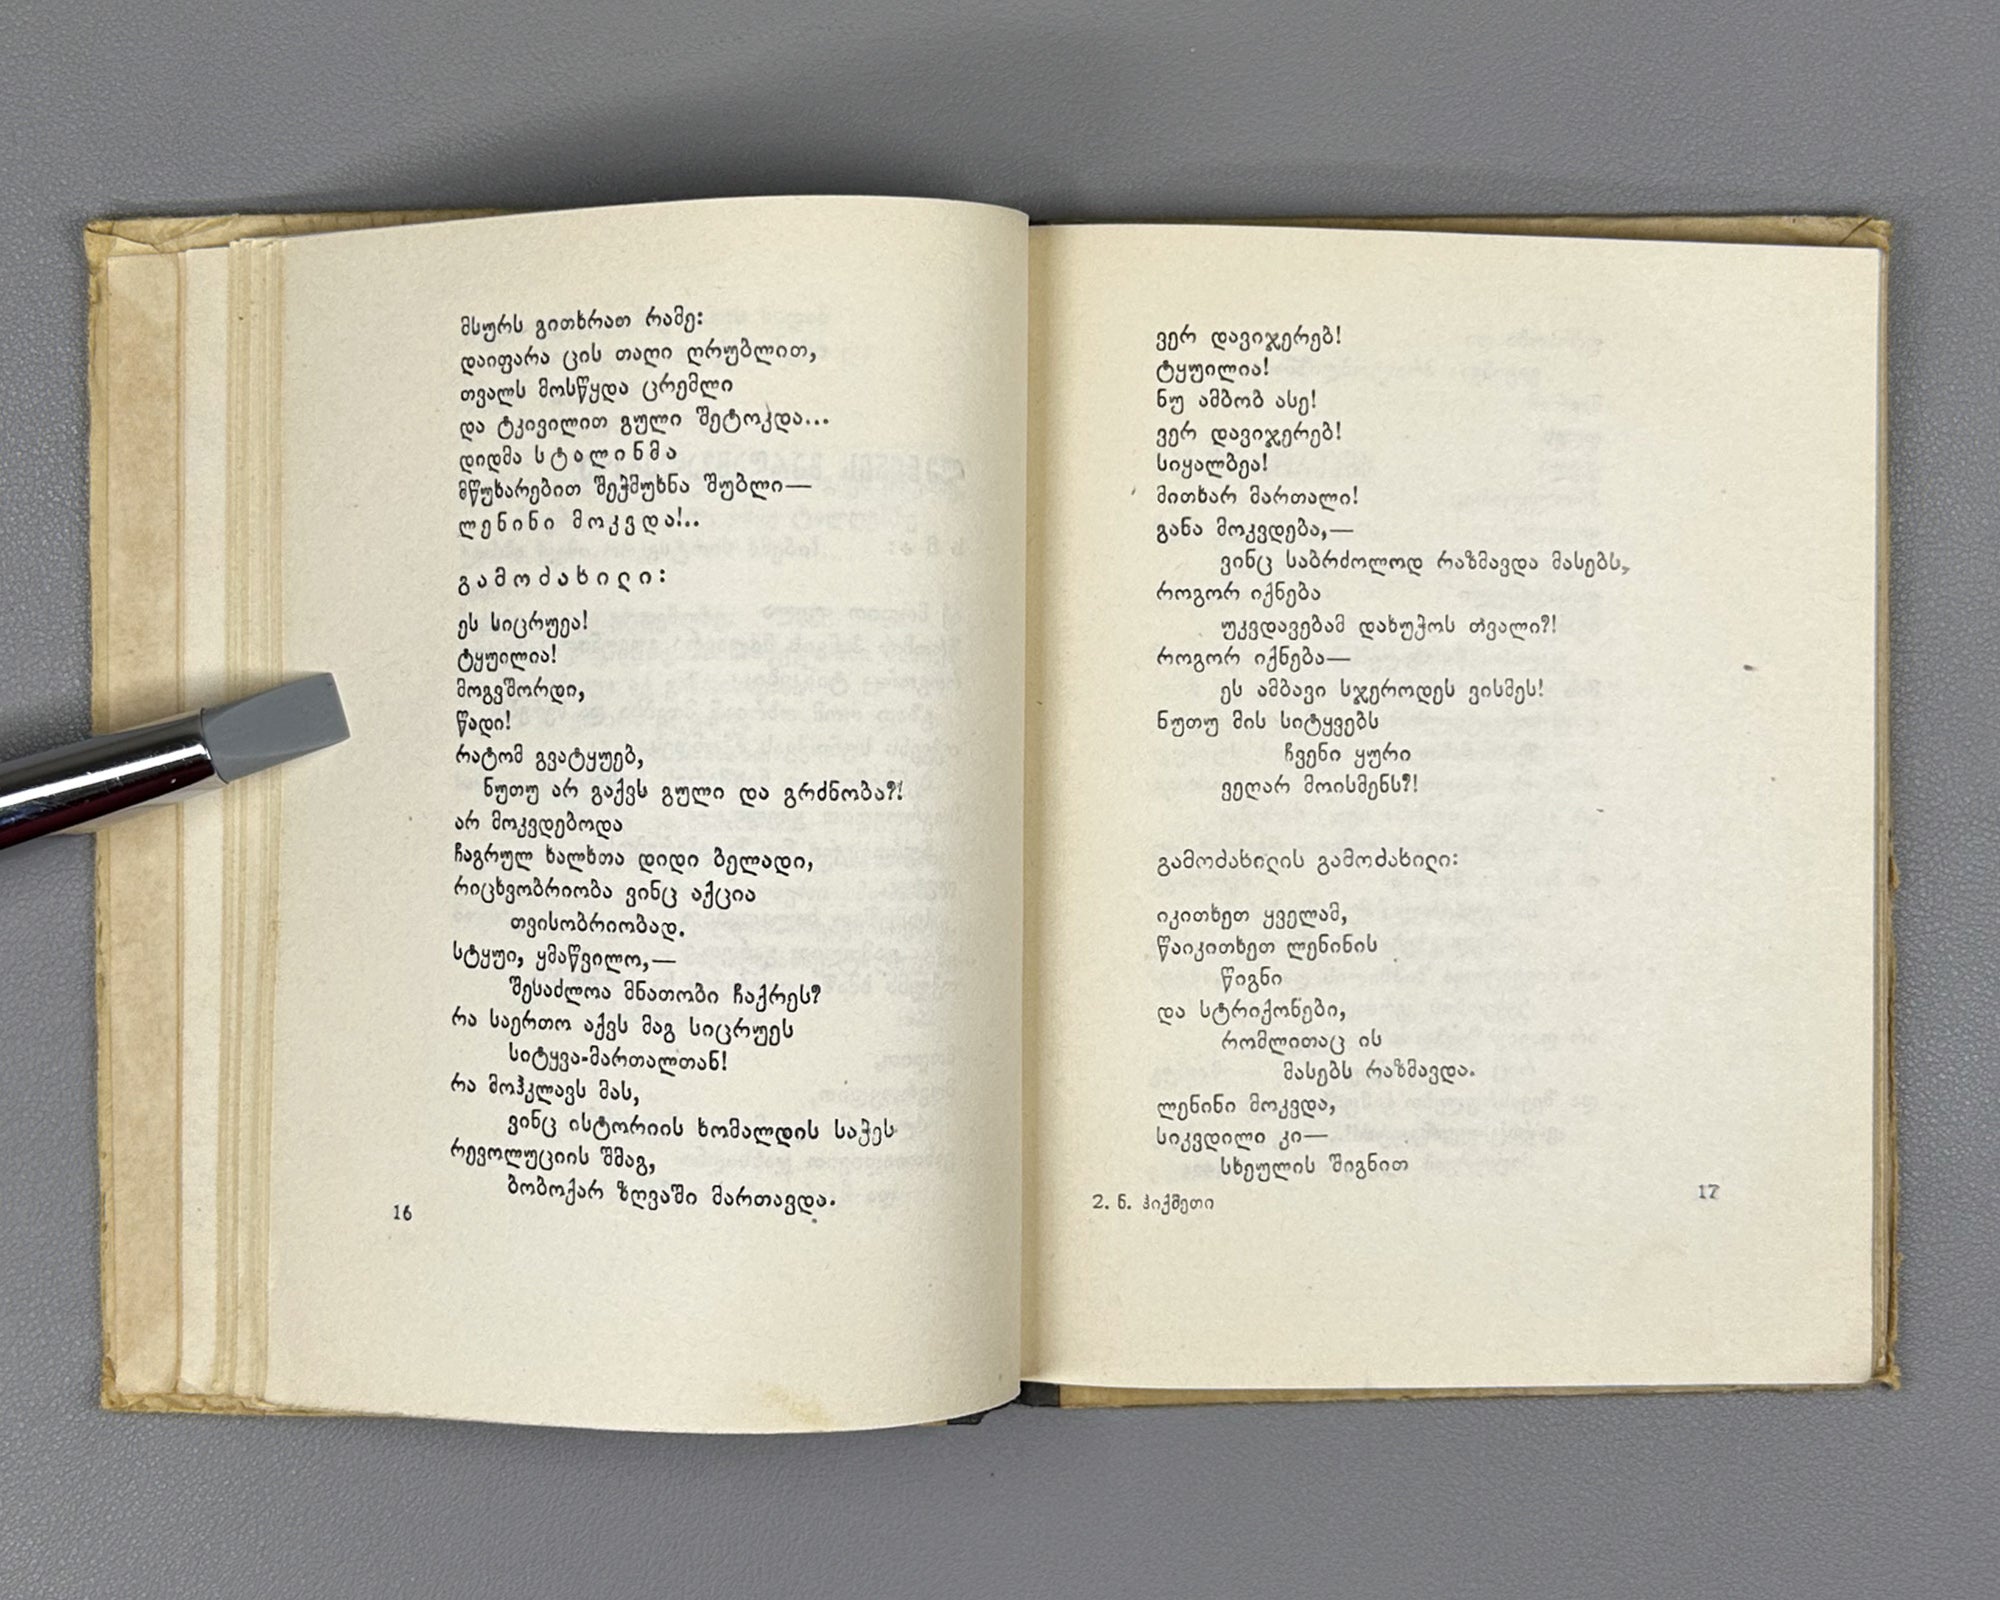 მსურს გითხრათ რამე:
დაიფარა ცის თაღი ღრუბლით,
თვალს მოსწყდა ცრემლი
და ტკივილით გული შეტოკდა...
დიდმა სტალინმა
მწუხარებით შეჭმუხნა შუბლი—
ლენინი მოკვდა!..
გამოძახილი:
ეს სიცრუეა!
ტყუილია!
მოგვშორდი,
წადი!
რატომ გვატყუებ,
ნუთუ არ გაქვს გული და გრძნობა?!
არ მოკვდებოდა
ჩაგრულ ხალხთა დიდი ბელადი,
რიცხვობრიობა ვინც აქცია
თვისობრიობად.
სტყუი, ყმაწვილო,—
შესაძლოა მნათობი ჩაქრეს?
რა საერთო აქვს მაგ სიცრუეს
სიტყვა-მართალთან!
რა მოჰკლავს მას,
ვინც ისტორიის ხომალდის საჭეს
რევოლუციის შმაგ,
ბობოქარ ზღვაში მართავდა.
16
ვერ დავიჯერებ!
ტყუილია!
ნუ ამბობ ასე!
ვერ დავიჯერებ!
სიყალბეა!
მითხარ მართალი!
განა მოკვდება,—
ვინც საბრძოლოდ რაზმავდა მასებს,
როგორ იქნება
უკვდავებამ დახუჭოს თვალი?!
როგორ იქნება—
ეს ამბავი სჯეროდეს ვისმეს!
ნუთუ მის სიტყვებს
ჩვენი ყური
ვეღარ მოისმენს?!
გამოძახილის გამოძახილი:
იკითხეთ ყველამ,
წაიკითხეთ ლენინის
წიგნი
და სტრიქონები,
რომლითაც ის
მასებს რაზმავდა.
ლენინი მოკვდა,
სიკვდილი კი—
სხეულის შიგნით
2. ნ. ჰიქმეთი
17